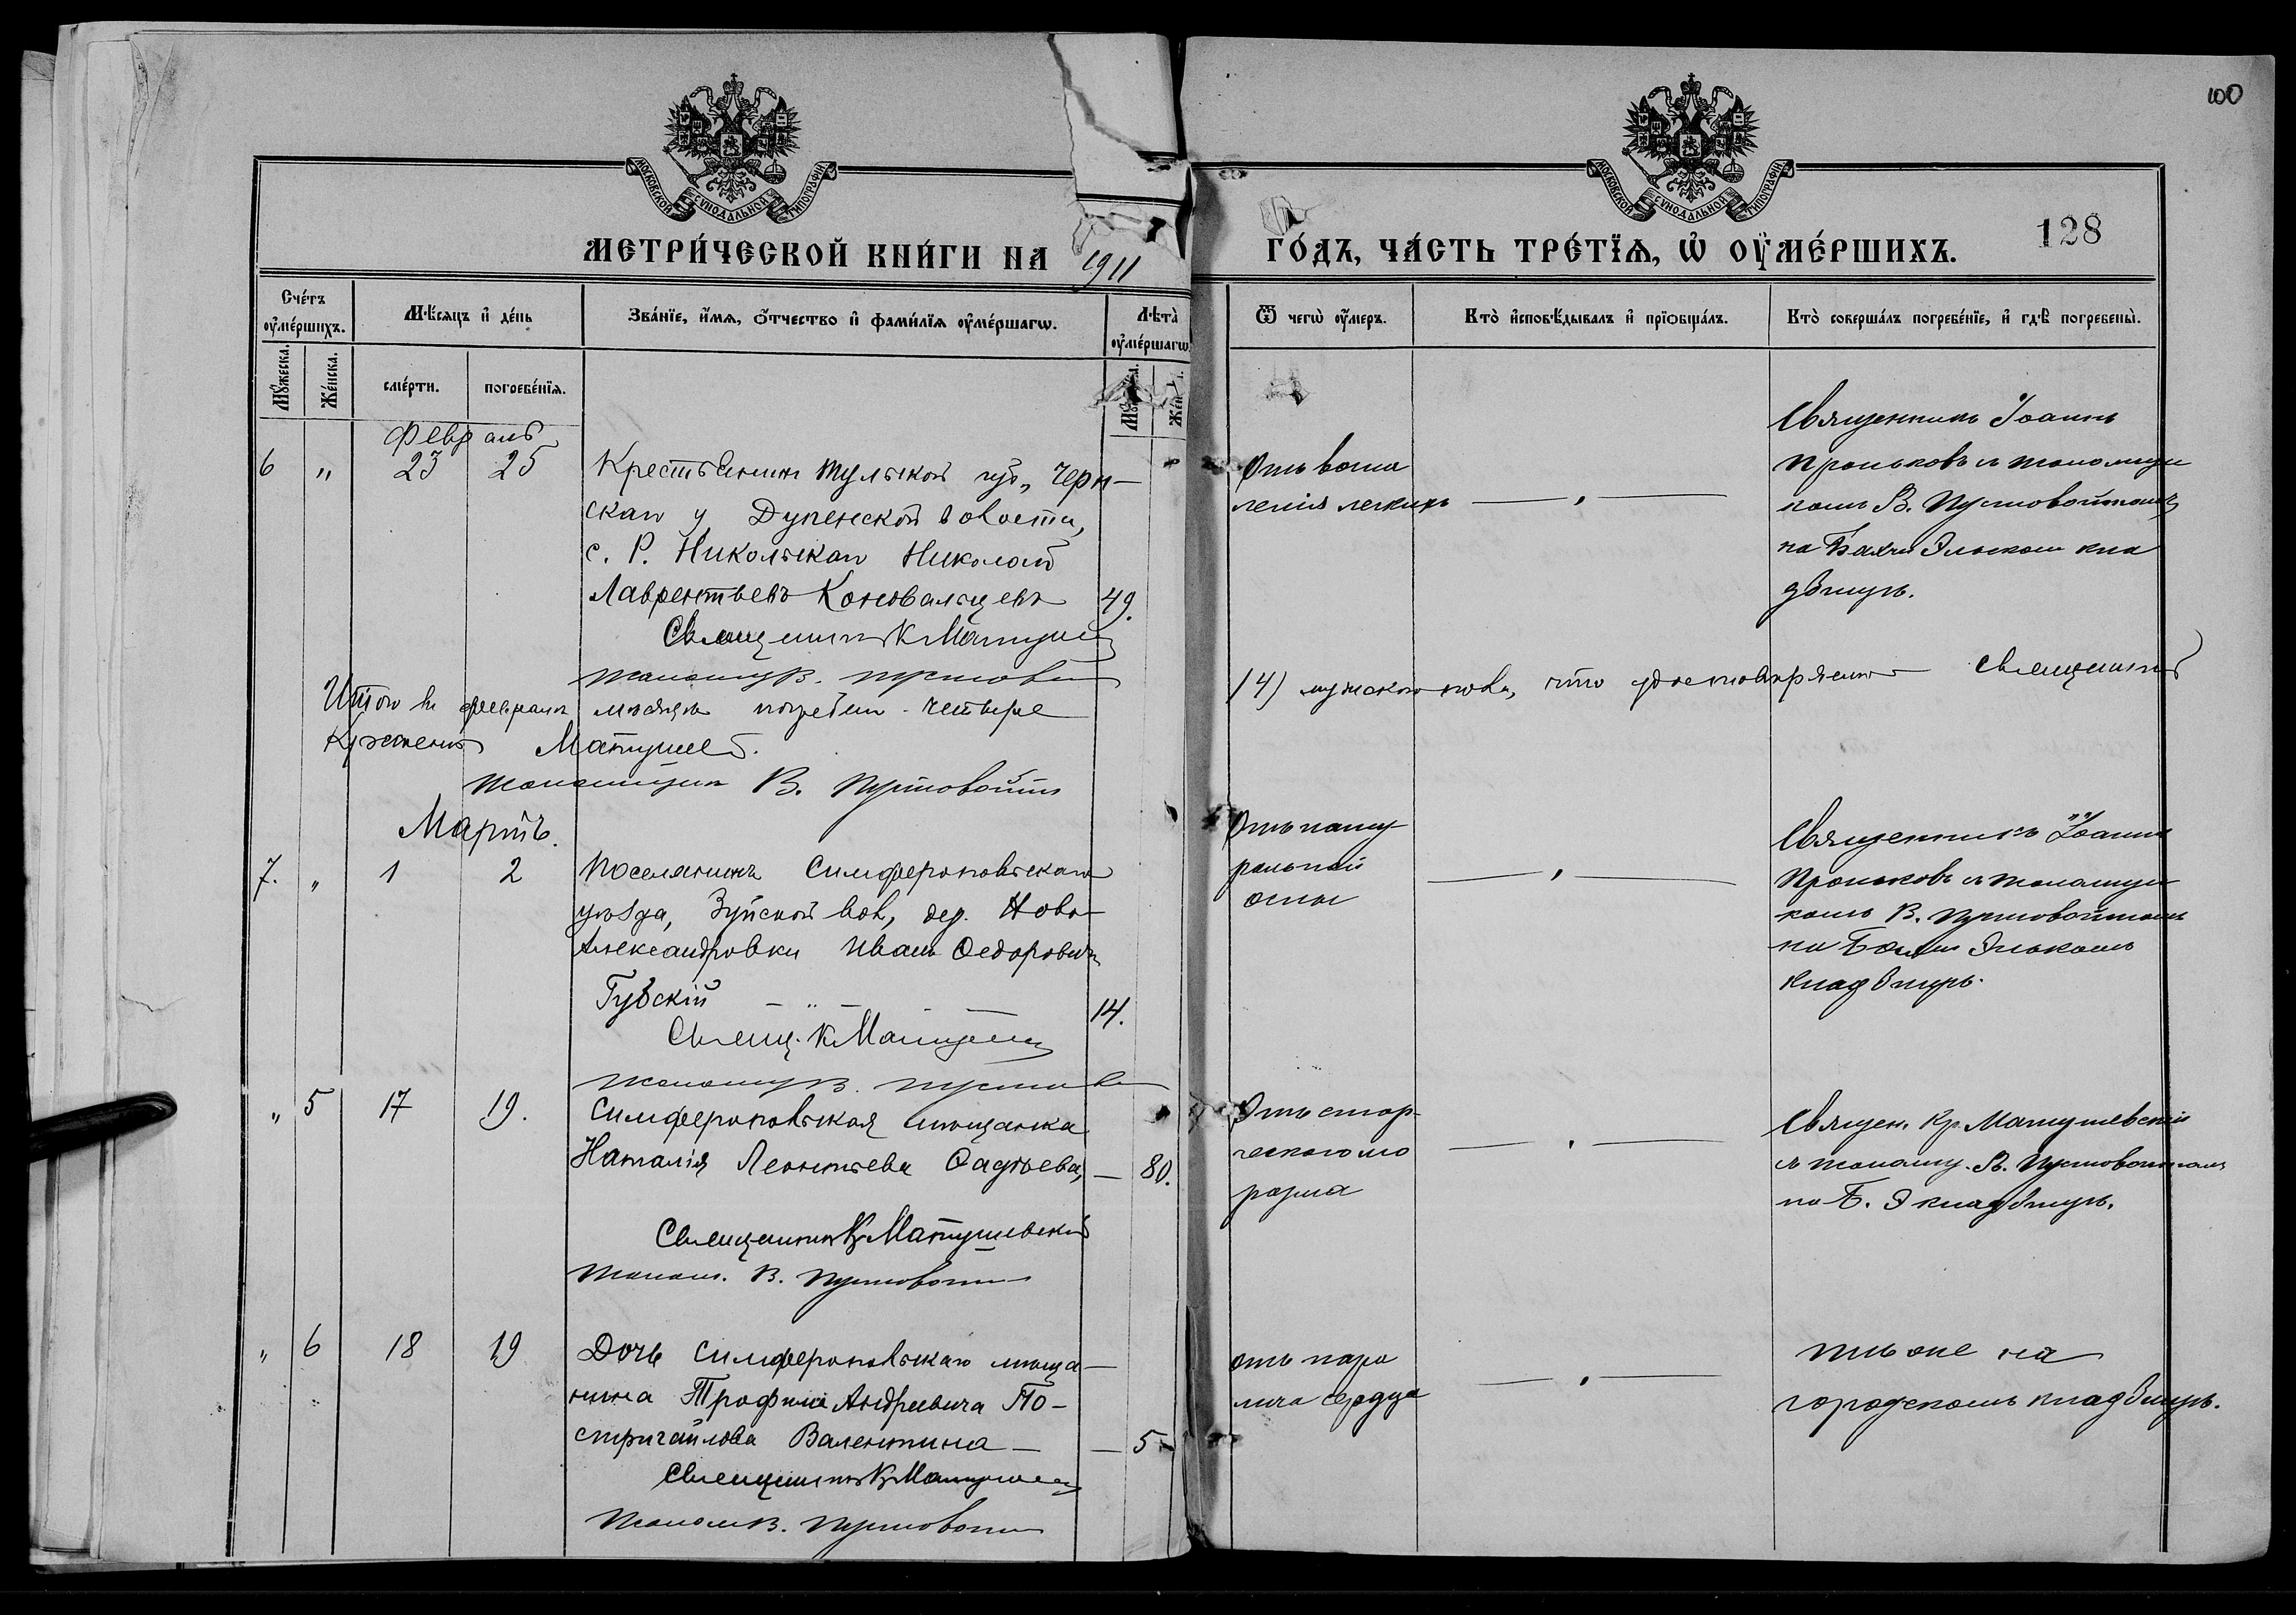 100
МОСКОВСКОЙ СѴНОДАЛЬНОЙ ТИПОГРАФІИ
МОСКОВСКОЙ СѴНОДАЛЬНОЙ ТИПОГРАФІИ
МЕТРИ́ЧЕСКОЙ КНИ́ГИ НА 1911 ГО́ДЪ, ЧА́СТЬ ТРЕ́ТЇѦ, Ѡ҆ ОУ҆МЕ́РШИХЪ.
128
Сче́тъ оу҆ме́ршихъ.
Мꙋ́жеска.
Же́нска.
Мѣ́сяцъ и҆ де́нь
сме́рти.
погребе́нїѧ.
Зва́нїе, и҆́мѧ, ѻ҆́тчество и҆ фами́лїѧ оу҆ме́ршагѡ.
Лѣ̑та̀ оу҆ме́ршагѡ
Ѿ чегѡ̀ оу҆́меръ.
Кто̀ и҆сповѣ́дывалъ и҆ прїѡбща́лъ.
Кто̀ соверша́лъ погребе́нїе, и҆ гдѣ̀ погребены̀.
Февраль
6 " 23 25
Крестьянинъ Тульской губ., Черн-
скаго у. волости,
с. Р. Никольскаго Николай
Лаврентьевъ Коновальцевъ 49.
Священникъ К Матушев
В. Пустовой
Отъ воспа
ленія легкихъ
Священникъ Іоаннъ
Проньковъ съ псаломщи
комъ В. Пустовойтомъ
на Бахчи Эльскомъ кла
дбищѣ.
Итого въ февралѣ мѣсяцѣ погребен четыре (4) мужского пола, что удостовѣряемъ Священникъ
Матушев.
Псаломщикъ В. Пустовойтъ
Мартъ.
7. " 1 2
Поселянинъ Симферопольскаго
уѣзда, Зуйской вол., дер. Ново-
Александровки Иванъ Ѳедоровичъ
Губскій 14.
Свящ. К Матушев
В. Пустово
Отъ нату
ральной
оспы
Священникъ Іоаннъ
Проньковъ съ псаломщи
комъ В. Пустовойтомъ
на Бахчи Эльскомъ
кладбищѣ.
" 5 17 19.
Симферопольская мѣщанка
Наталія Леонтьева Ѳадѣева, — 80.
Священникъ К Матушевскій
Псалом. В. Пустовойтъ
Отъ стар-
ческаго ма
разма
Священ. Кр. Матушевскій
съ псаломщ. В. Пустовойтомъ
на Б. Э кладбищѣ.
" 6 18 19
Дочь Симферопольскаго мѣща-
нина Трофима Андреевича По-
стригайлова Валентина — — 5
Священникъ К Матушев
Псалом В. Пустовойтъ
отъ пара
лича сердца
тѣ же на
городскомъ кладбищѣ.